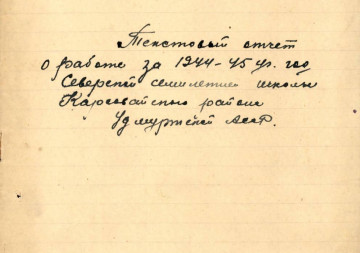 Текстовый отчет
о работе за 1944-45 уч. год
Северской семилетней школы
Карсовайского района
Удмуртской АССР.